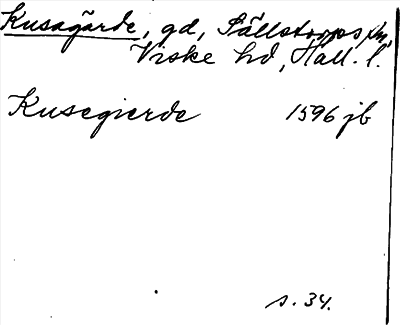 Kusagärde, gd, Sällstorps sn,
Viske hd, Hall. l.
Kusegierde 1596 jb
s. 34.